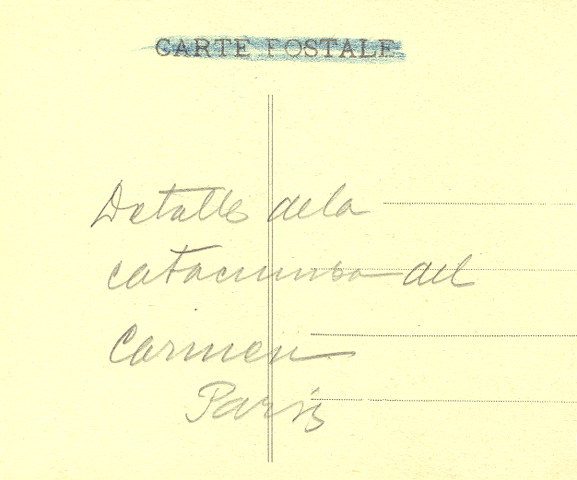 CARTE POSTALE
Detalle de la
catacumba del
Carmen
Paris